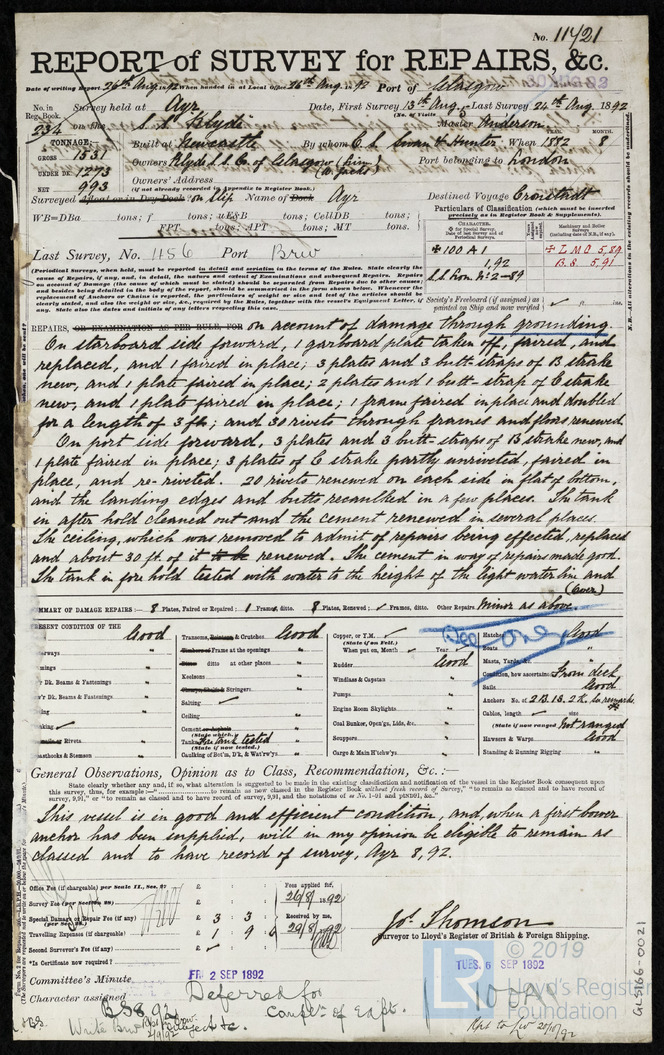 No. 11421
REPORT of SURVEY for REPAIRS, &c.
Date of writing Report 26th Aug. 1892 When handed in at Local Office 26th Aug. 1892 Port of Glasgow
No. in Reg. Book. Survey held at Ayr Date, First Survey 13th Aug. Last Survey 24th Aug. 1892
(No. of Visits
234 on the S.S. Klyde Master Anderson
TONNAGE: Built at Newcastle By whom C. S. Swan & Hunter, When 1882 MONTH. 8
GROSS 1531 Owners Klyde S.S. Co. of Glasgow Port belonging to London
UNDER DK. 1273 Owners' Address
NET 993 (if not already recorded in Appendix to Register Book.)
Surveyed Afloat or in Dry Dock on slip Name of Dock Ayr Destined Voyage Cronstadt
WB=DBa tons; f tons; uE&B tons; CellDB tons;
FPT tons; APT tons; MT tons.
Particulars of Classification (which must be inserted precisely as in Register Book & Supplements).
CHARACTER.
Machinery and Boiler Surveys
100 A1 L.M.C. 5,89
1,92 B.S. 5,91
Last Survey, No. 1156 Port Brw
S.S. Lon. No. 2-89
(Periodical Surveys, when held, must be reported in detail and seriatim in the terms of the Rules. State clearly the cause of Repairs, if any, and, in detail, the nature and extent of Examinations and subsequent Repairs. Repairs on account of Damage (the cause of which must be stated) should be separated from Repairs due to other causes; and besides being detailed in the body of the report, should be summarised in the form shown below. Whenever the replacement of Anchors or Chains is required, the particulars of weight or size and test of the articles should be clearly stated, and also the weight or size, &c., required by the Rules, together with the vessel's Equipment Letter, if any. State also the dates and initials of any letters respecting this case.
Society's Freeboard (if assigned) as painted on Ship and now verified ft. ins.
REPAIRS, OR EXAMINATION AS PER RULE, FOR on account of damage through grounding.
On starboard side forward, 1 garboard plate taken off, faired, and
replaced, and 1 faired in place; 3 plates and 3 butt-straps of B strake
new, and 1 plate faired in place; 2 plates and 1 butt-strap of C strake
new, and 1 plate faired in place; 1 frame faired in place and doubled
for a length of 3 ft; and 30 rivets through frames and floors renewed
On port side forward, 3 plates and 3 butt-straps of B strake new, and
1 plate faired in place; 3 plates of C strake partly unriveted, faired in
place, and re-riveted. 20 rivets renewed on each side in flat of bottom,
and the landing edges and butts recaulked in a few places. The tank
in after hold cleaned out and the cement renewed in several places.
The ceiling, which was removed to admit of repairs being effected, replaced
and about 30 ft. of it to be renewed. The cement in way of repairs made good.
The tank in fore hold tested with water to the height of the light water line and
(Over)
SUMMARY OF DAMAGE REPAIRS:— 8 Plates, Faired or Repaired; 1 Frames, ditto. 8 Plates, Renewed; Frames, ditto. Other Repairs Minor as above.
PRESENT CONDITION OF THE
Good
Transoms, Pointers & Crutches. Good
Frame at the openings "
ditto at other places "
Keelsons "
Stringers "
Salting
Ceiling "
Cement
(State which.)
Tanks Fore tank tested
(State if now tested.)
Caulking of Bot'm, D'k, & Wat'rw'ys "
Dk. Beams & Fastenings "
Rivets "
Copper, or Y.M.
(State if on Felt.)
When put on, Month Year
Rudder Good
Windlass & Capstan "
Pumps "
Engine Room Skylights "
Coal Bunker, Open'gs, Lids, &c. "
Scuppers "
Cargo & Main H'tchw'ys "
Hatches Good
Boats "
Masts, Yards, &c. "
Condition, how ascertained From deck
Sails Good
Anchors No. of 2 B. 1 S. 2 K. See remarks.
Cables, length size
(State if now ranged) Not ranged
Hawsers & Warps Good
Standing & Running Rigging "
General Observations, Opinion as to Class, Recommendation, &c.:—
State clearly whether any, and if so, what alteration is suggested to be made in the existing classification and notification of the vessel in the Register Book consequent upon this survey, thus, for example :—
This vessel is in good and efficient condition, and when a first bower
anchor has been supplied, will in my opinion be eligible to remain as
classed and to have record of survey, Ayr 8,92.
Office Fee (if chargeable) per Scale II., Sec. 8: £ : :
Fees applied for, 26/8/1892
Survey Fee (per Section 28) £ : :
Special Damage or Repair Fee (if any) £ 3 : 3 :
Received by me, 29/8/1892
Travelling Expenses (if chargeable) £ 1 : 9 : 6
Second Surveyor's Fee (if any) £
*Is Certificate now required?
Jos. Thomson
Surveyor to Lloyd's Register of British & Foreign Shipping.
Committee's Minute FRI 2 SEP 1892
TUES. 6 SEP 1892
Character assigned Deferred for
Complt of Eqpt.
100A1
© 2019
Lloyd's Register
Foundation
GLS166-0021